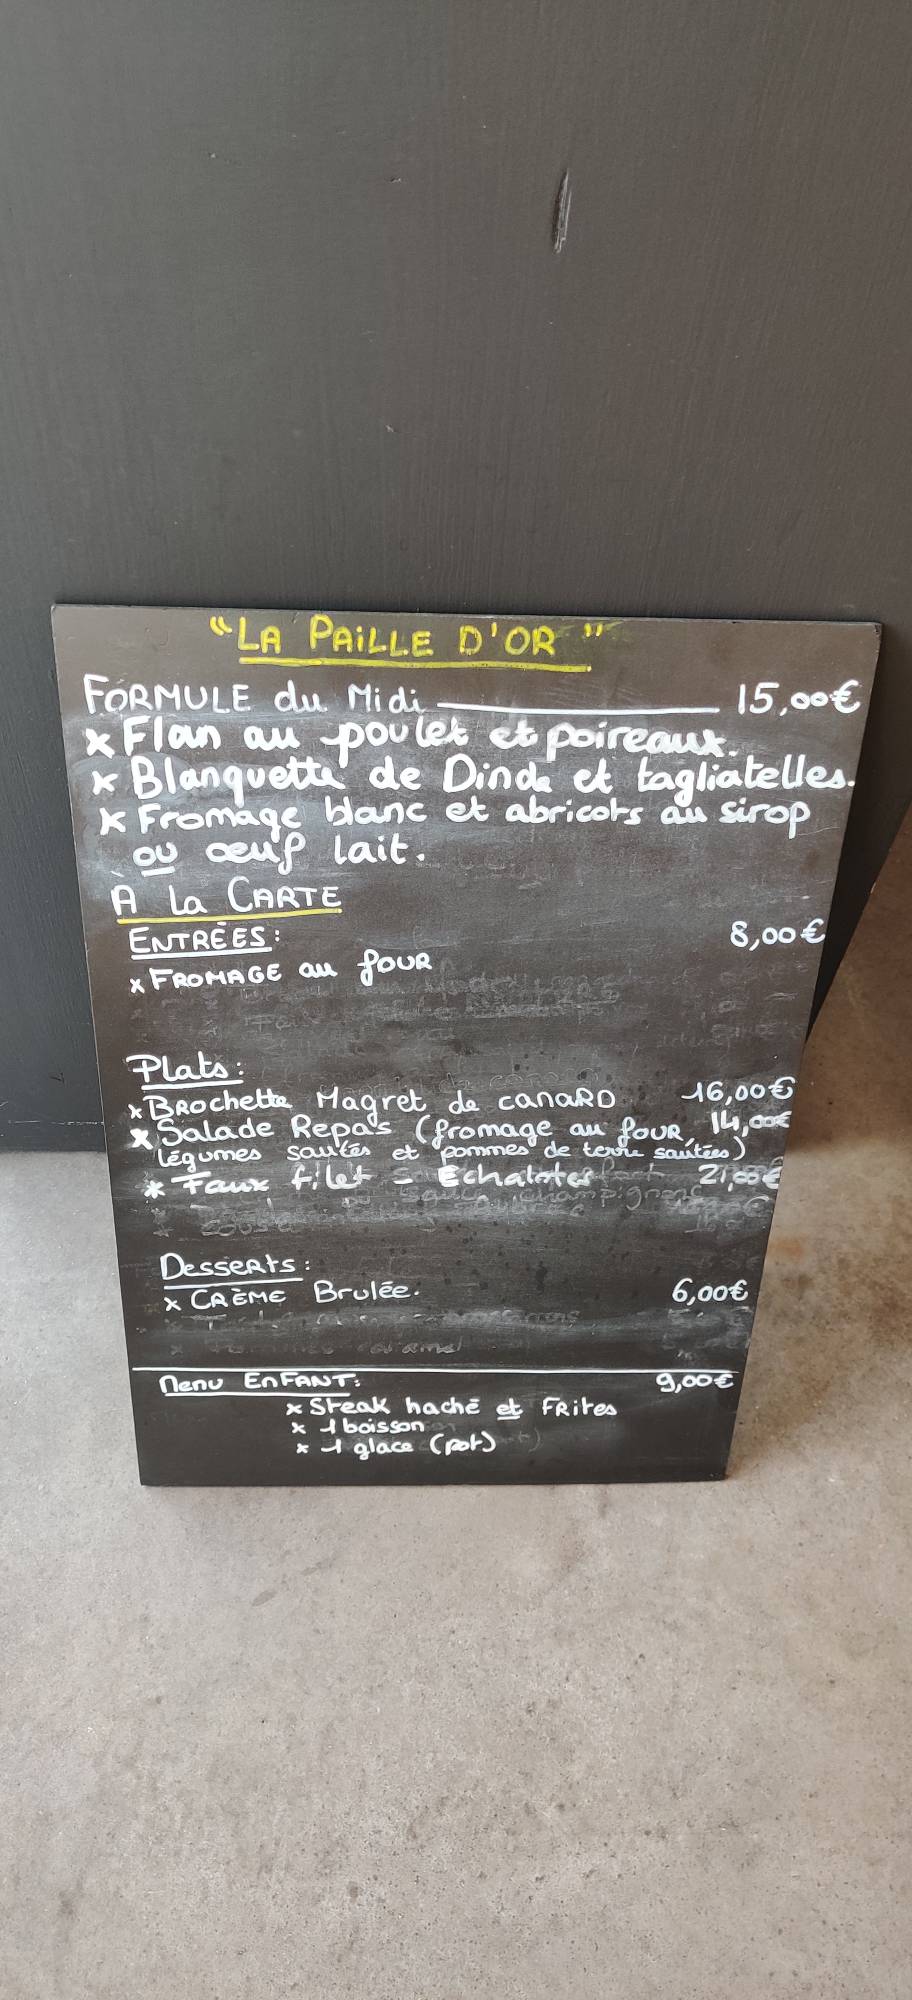 "LA PAiLLE D'OR"
FORMULE du Midi 15,00€
x Flan au poulet et poireaux.
x Blanquette de Dinde et tagliatelles.
x Fromage blanc et abricots au sirop
ou œuf lait.
A La CARTE
ENTRÉES: 8,00€
x FROMAGE au fOUR
Plats:
x BROchette Magret de canaRD 16,00€
x Salade Repas (fromage au four, 14,00€
légumes sautés et pommes de terre sautées)
x Faux filet - Echalotes 21,00€
DesseRts:
x CRÈME Brulée. 6,00€
Menu EnFANT: 9,00€
x Steak haché et FRites
x 1 boisson
x 1 glace (pot)